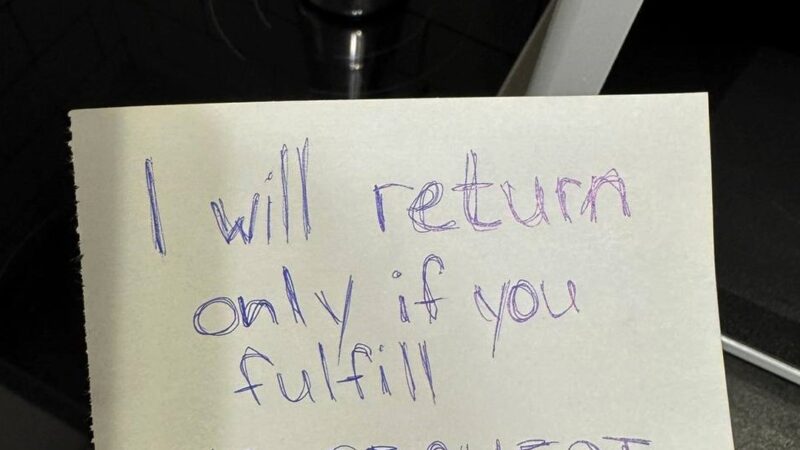 I will return
only if you
fulfill